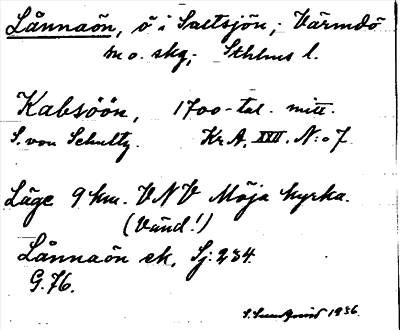 Lånnaön, ö i Saltsjön, Värmdö
m o. skg, Sthlms l.
Kabsöön, 1700-tal. mitt.
S. von Schultz. Kr.A. XXII. N:o 7
Läge 9 km. VNV Möja kyrka.
(Vänd!)
Lånnaön ek. Sj: 234.
G. 76.
1936.